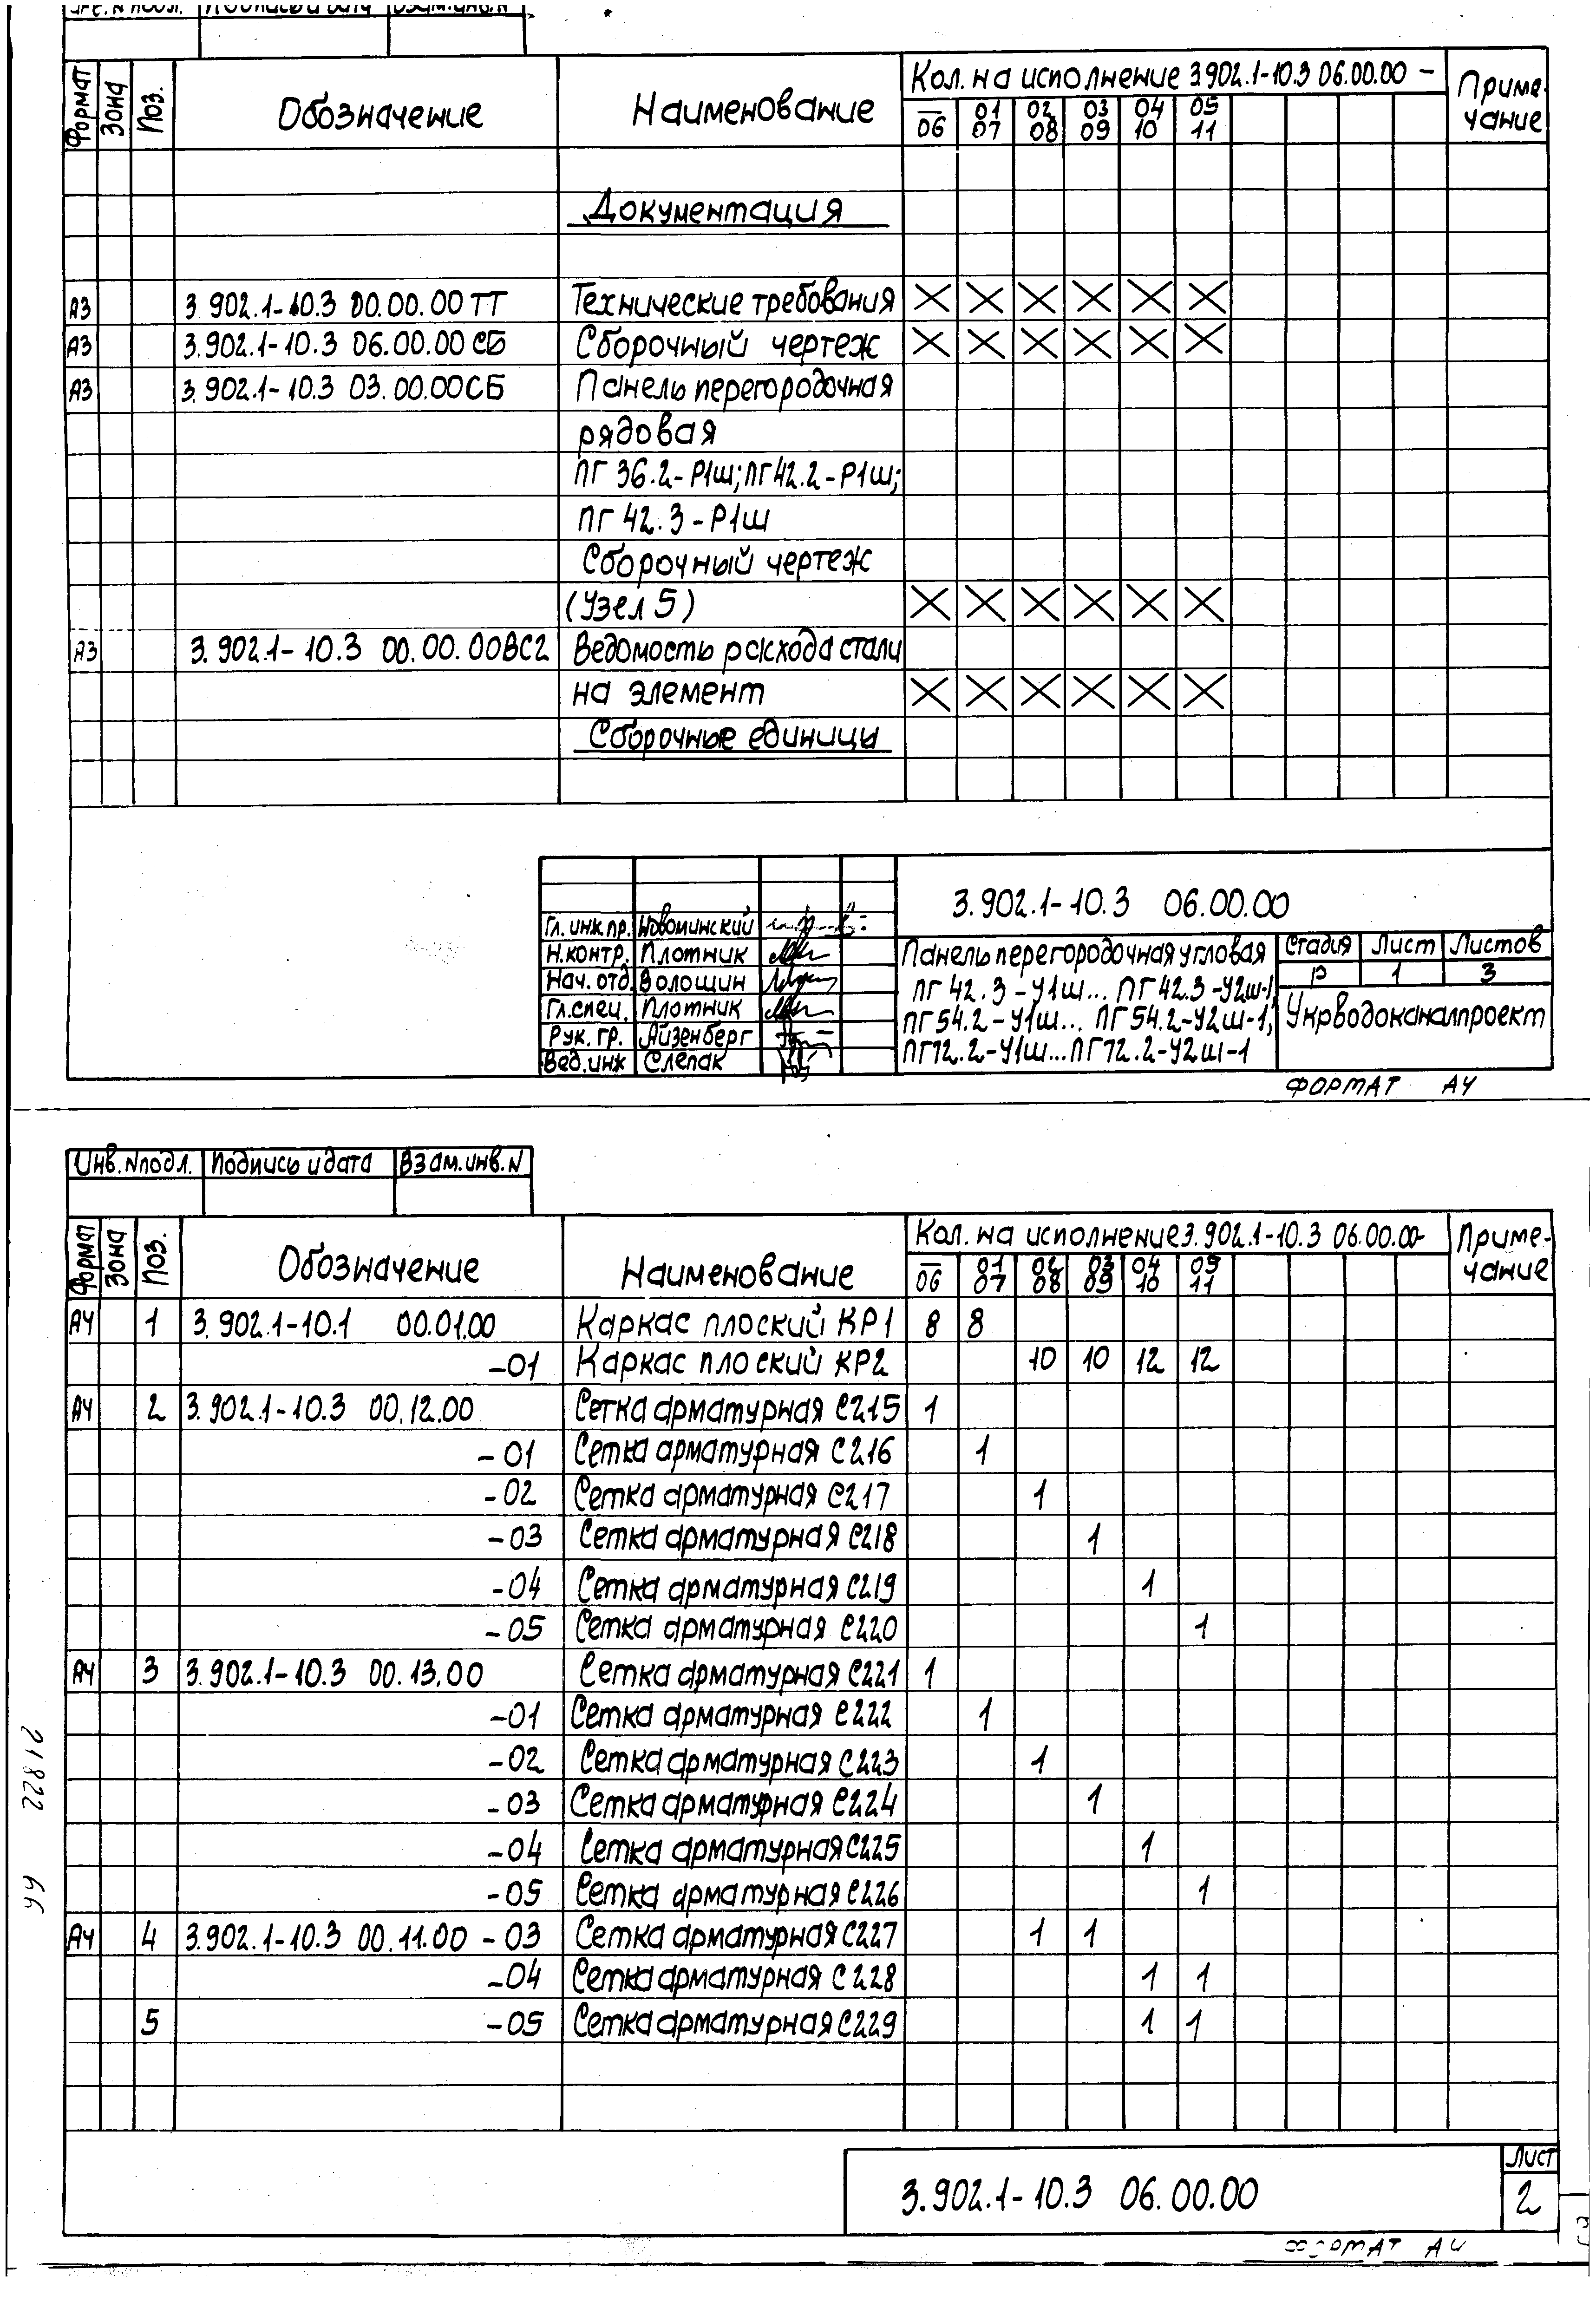 Инв. N подл. Подпись и дата Взам. инв. N
Формат Зона Поз. Обозначение Наименование Кол. на исполнение 3.902.1-10.3 06.00.00 - Приме-
чание
— 01 02 03 04 05
06 07 08 09 10 11
Документация
А3 3.902.1-10.3 00.00.00 ТТ Технические требования X X X X X X
А3 3.902.1-10.3 06.00.00 СБ Сборочный чертеж X X X X X X
А3 3.902.1-10.3 03.00.00СБ Панель перегородочная
рядовая
ПГ 36.2-Р1ш; ПГ42.2-Р1ш;
ПГ 42.3-Р1ш
Сборочный чертеж
(Узел 5) X X X X X X
А3 3.902.1-10.3 00.00.00ВС2 Ведомость расхода стали
на элемент X X X X X X
Сборочные единицы
3.902.1-10.3 06.00.00
Гл. инж. пр. Новоминский
Н.контр. Плотник
Нач. отд. Волошин
Гл.спец. Плотник
Рук. гр. Айзенберг
Вед.инж Слепак
Панель перегородочная угловая
ПГ 42.3-У1ш... ПГ42.3-У2ш-1,
ПГ54.2-У1ш... ПГ54.2-У2ш-1;
ПГ72.2-У1ш...ПГ72.2-У2ш-1
Стадия Лист Листов
Р 1 3
Укрводоканалпроект
ФОРМАТ А4
Инв. N подл. Подпись и дата Взам. инв. N
Формат Зона Поз. Обозначение Наименование Кол. на исполнение 3.902.1-10.3 06.00.00- Приме-
чание
— 01 02 03 04 05
06 07 08 09 10 11
А4 1 3.902.1-10.1 00.01.00 Каркас плоский КР1 8 8
-01 Каркас плоский КР2 10 10 12 12
А4 2 3.902.1-10.3 00.12.00 Сетка арматурная С215 1
-01 Сетка арматурная С216 1
-02 Сетка арматурная С217 1
-03 Сетка арматурная С218 1
-04 Сетка арматурная С219 1
-05 Сетка арматурная С220 1
А4 3 3.902.1-10.3 00.13.00 Сетка арматурная С221 1
-01 Сетка арматурная С222 1
-02 Сетка арматурная С223 1
-03 Сетка арматурная С224 1
-04 Сетка арматурная С225 1
-05 Сетка арматурная С226 1
А4 4 3.902.1-10.3 00.11.00 - 03 Сетка арматурная С227 1 1
-04 Сетка арматурная С228 1 1
5 -05 Сетка арматурная С229 1 1
3.902.1-10.3 06.00.00
Лист
2
ФОРМАТ А4
21822 66